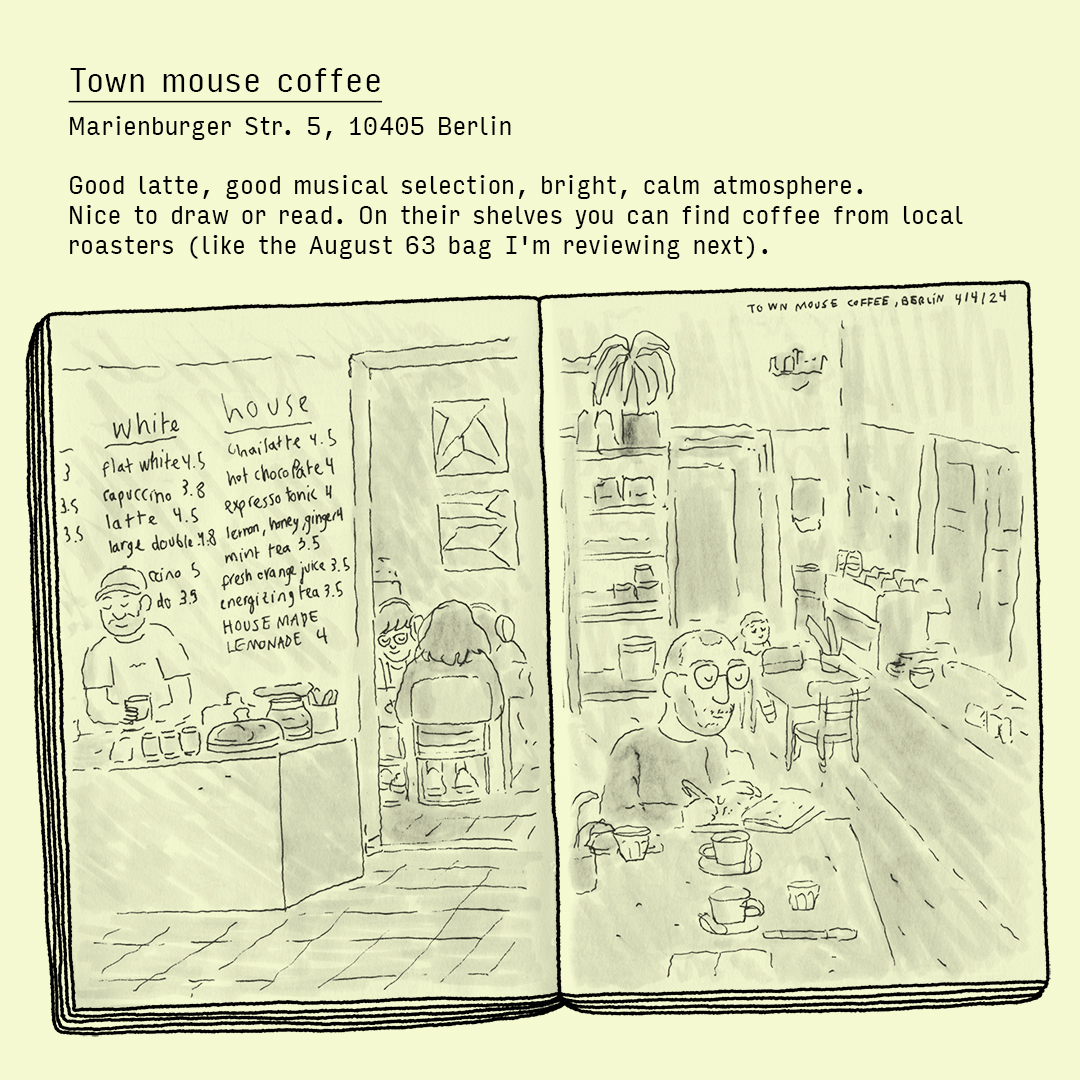 Town mouse coffee
Marienburger Str. 5, 10405 Berlin
Good latte, good musical selection, bright, calm atmosphere.
Nice to draw or read. On their shelves you can find coffee from local
roasters (like the August 63 bag I'm reviewing next).
TOWN MOUSE COFFEE, BERLIN 4/4/24
3
3.5
3.5
white
flat white 4.5
capuccino 3.8
latte 4.5
large double 4.8
ccino 5
do 3.5
house
chailatte 4.5
hot chocolate 4
expresso tonic 4
lemon, honey, ginger 4
mint tea 3.5
fresh orange juice 3.5
energizing tea 3.5
HOUSE MADE
LEMONADE 4